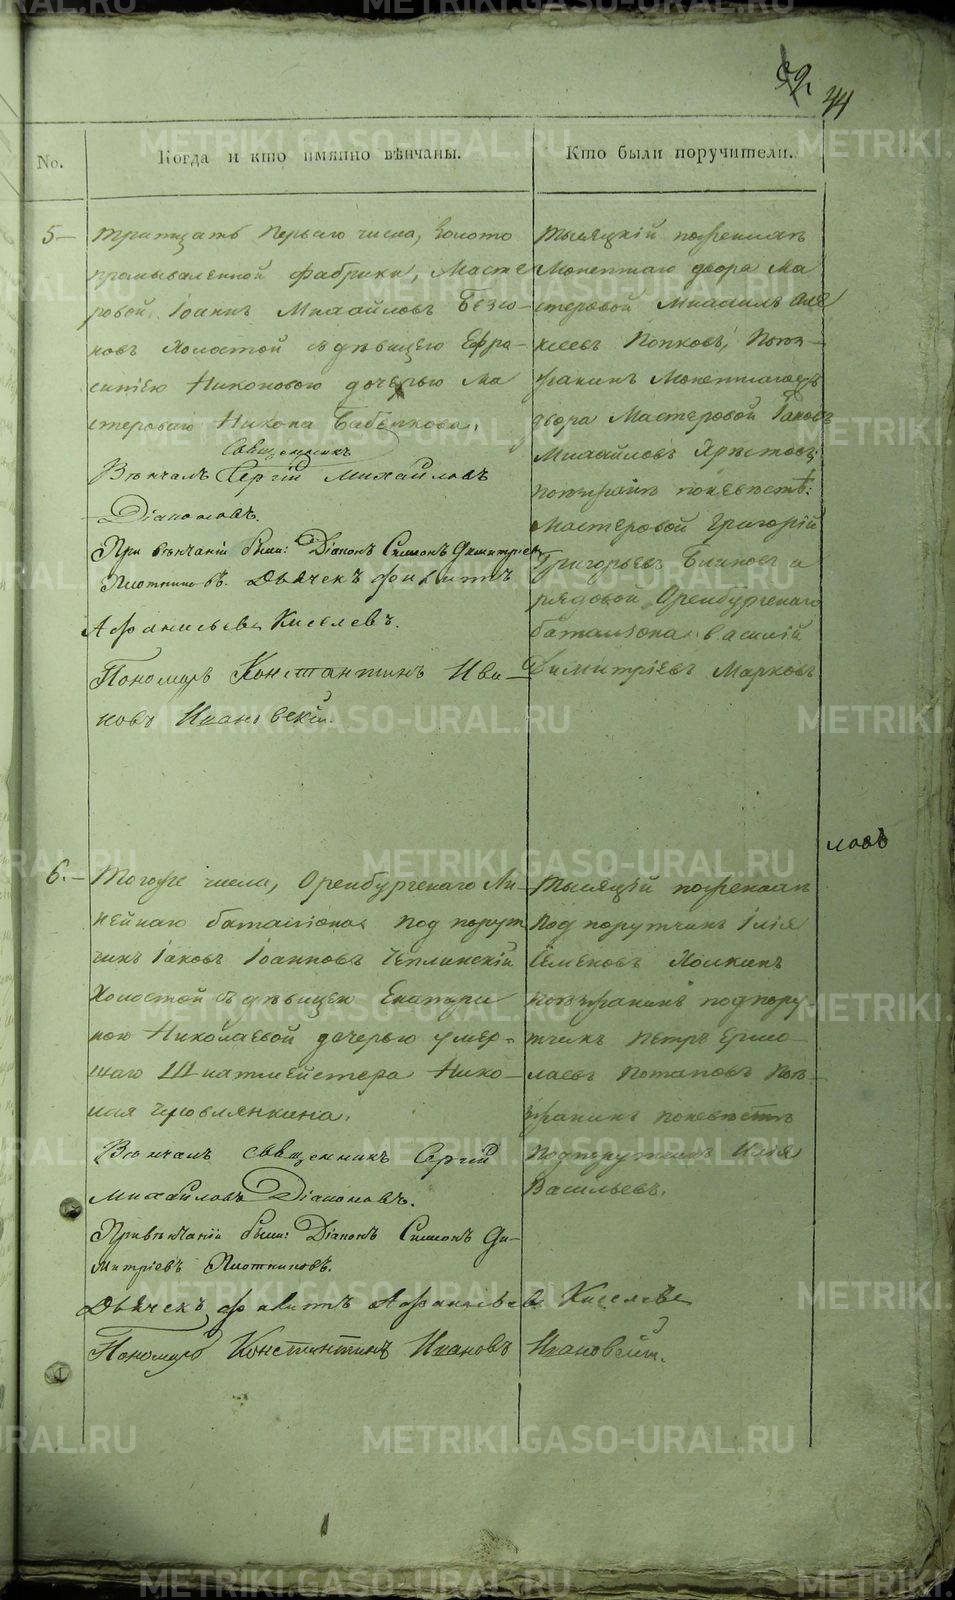 59.
44
No.
Когда и кто имянно вѣнчаны.
Кто были поручители.
5 — тритцать перваго числа, золото
промываленной фабрики, Масте
ровой Іоаннъ Михайловъ
новъ Холостой съ дѣвицею Ефро
синіею Никоновою дочерью ма
стероваго Никона Бабенкова.
Священникъ
Вѣнчалъ Сергій Михайловъ
Діаконовъ.
При вѣнчаніи были: Діаконъ Симеонъ Димитріевъ
Плотниковъ. Дьячекъ Афанасьевъ Киселевъ.
Пономарь Константинъ Ива
новъ Ивановскій.
Тысяцкій по женихѣ
Монетнаго двора Ма
стеровой Михаилъ Але
ксеевъ Попковъ, Поѣз
жанинъ Монетнаго
двора Мастеровой Іаковъ
Михайловъ
поѣзжанѣ по невѣстѣ:
Мастеровой Григорій
Григорьевъ и
рядовой Оренбургскаго
баталіона Василій
Димитріевъ Марковъ
6. — Тогоже числа, Оренбургскаго Ли
нейнаго баталіона Подпорут
чикъ Іаковъ Іоанновъ Чеплинскій
Холостой съ дѣвицею Екатери
ною Николаевой дочерью умер
шаго Шихтмейстера Нико
лая
Вѣнчалъ священникъ Сергій
Михайловъ Діаконовъ.
При вѣнчаніи были: Діаконъ Симеонъ Ди
митріевъ Плотниковъ.
Дьячекъ Афанасьевъ Киселевъ
Пономарь Константинъ Ивановъ Ивановскій.
Тысяцкій по женихѣ
Подпорутчикъ Илія
Семеновъ
поѣзжанинъ подпору
тчикъ Петръ Ермо
лаевъ Потаповъ Поѣз
жанинъ по невѣстѣ
Подпорутчикъ Илія
Васильевъ.
ловъ
METRIKI.GASO-URAL.RU